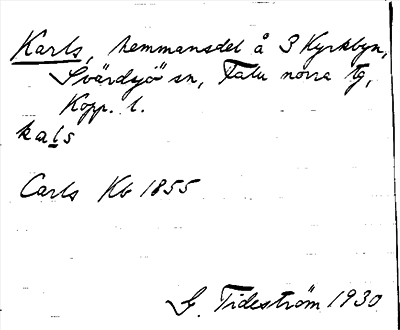 Karls, hemmansdel å 3 Kyrkbyn,
Svärdsjö sn, Falu norra tg,
Kopp. l.
kals
Carls Kb 1855
G. Tideström 1930